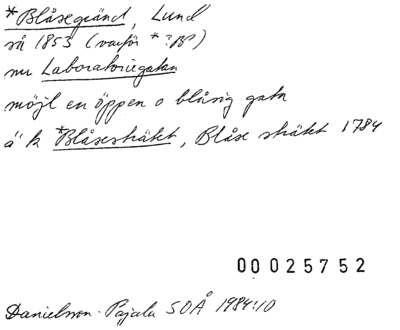 *Blåsegränd, Lund
så 1853 (varför *?B°)
nu Laboratoriegatan
möjl en öppen o blåsig gata
á k *Blåsestråket, Blåse stråket 1784
00025752
Danielson-Pajala SOÅ 1984:10